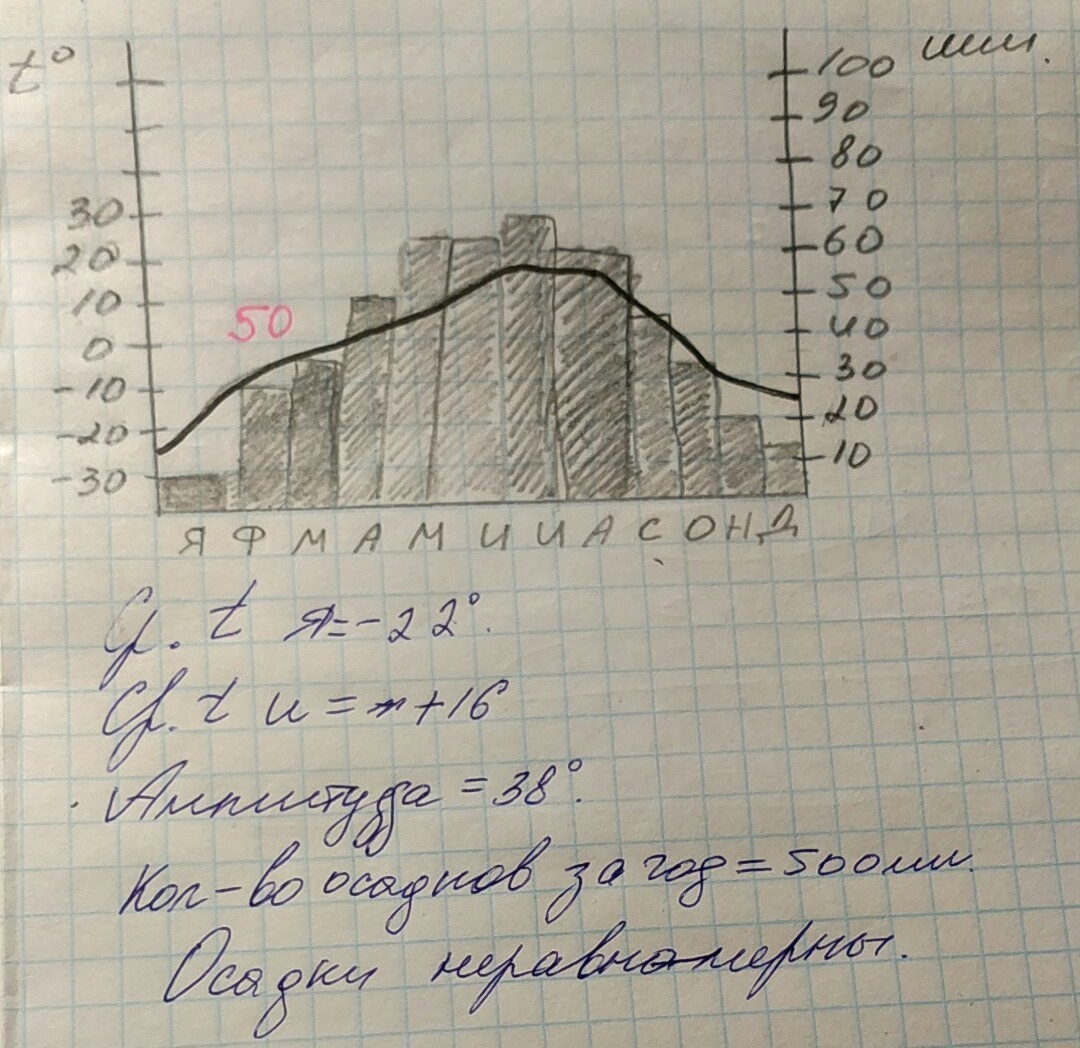 t° мм.
100
90
80
30 70
20 60
10 50 50
0 40
-10 30
-20 20
-30 10
Я Ф М А М И И А С О Н Д
Ср. t Я=-22°.
Ср. t и = +16
Амплитуда = 38°.
Кол-во осадков за год = 500мм.
Осадки неравномерны.